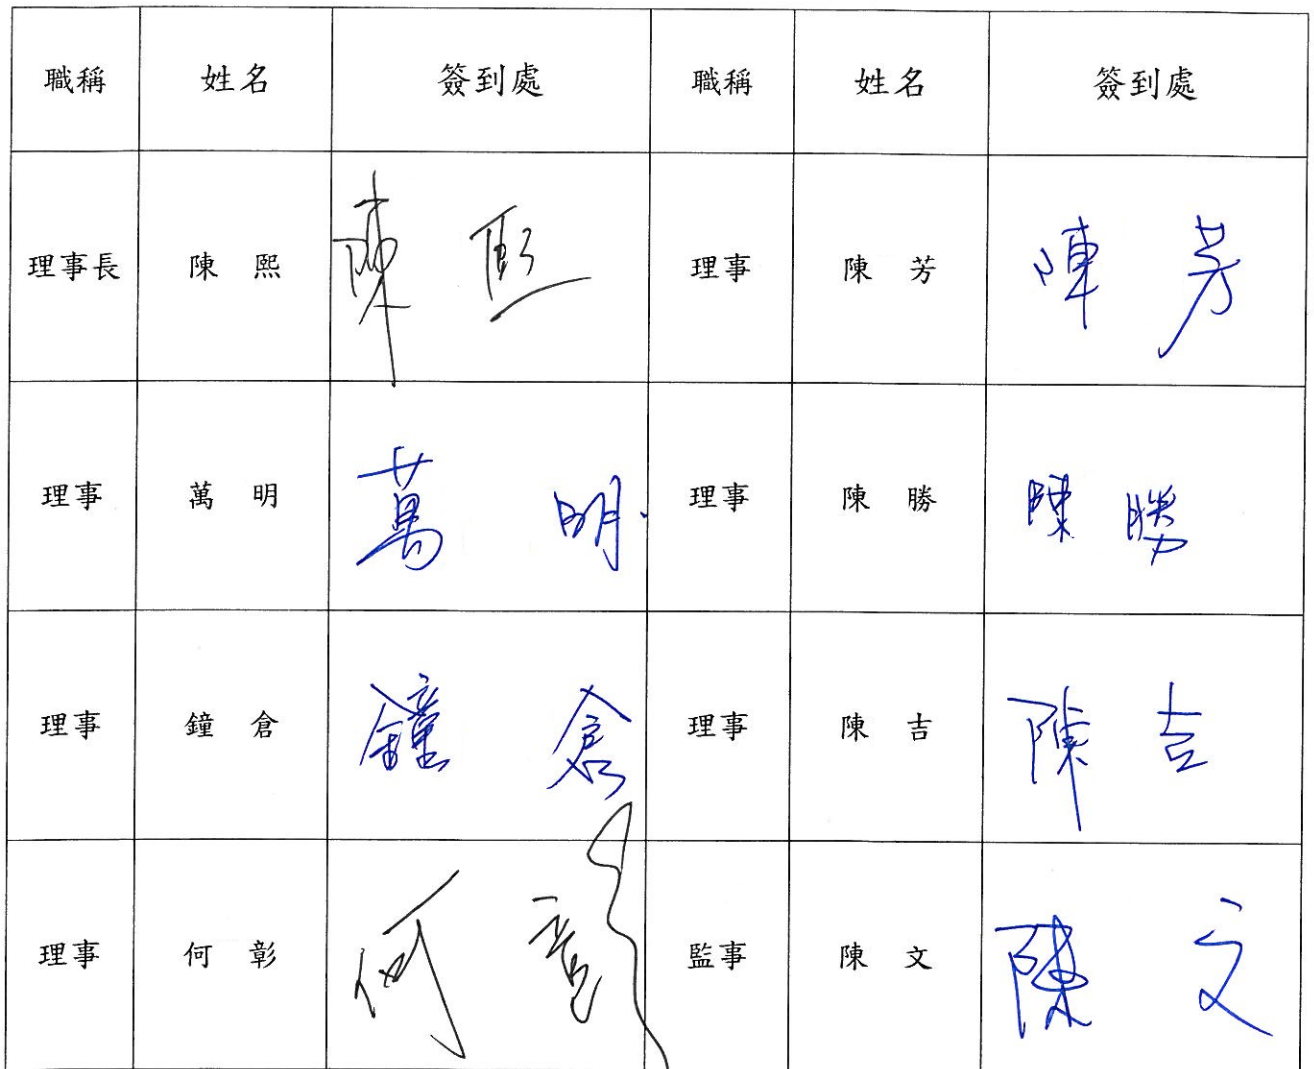 職稱 姓名 簽到處 職稱 姓名 簽到處
理事長 陳 熙 陳 熙 理事 陳 芳 陳 芳
理事 萬 明 萬 明 理事 陳 勝 陳 勝
理事 鐘 倉 鐘 倉 理事 陳 吉 陳 吉
理事 何 彰 何 彰 監事 陳 文 陳 文